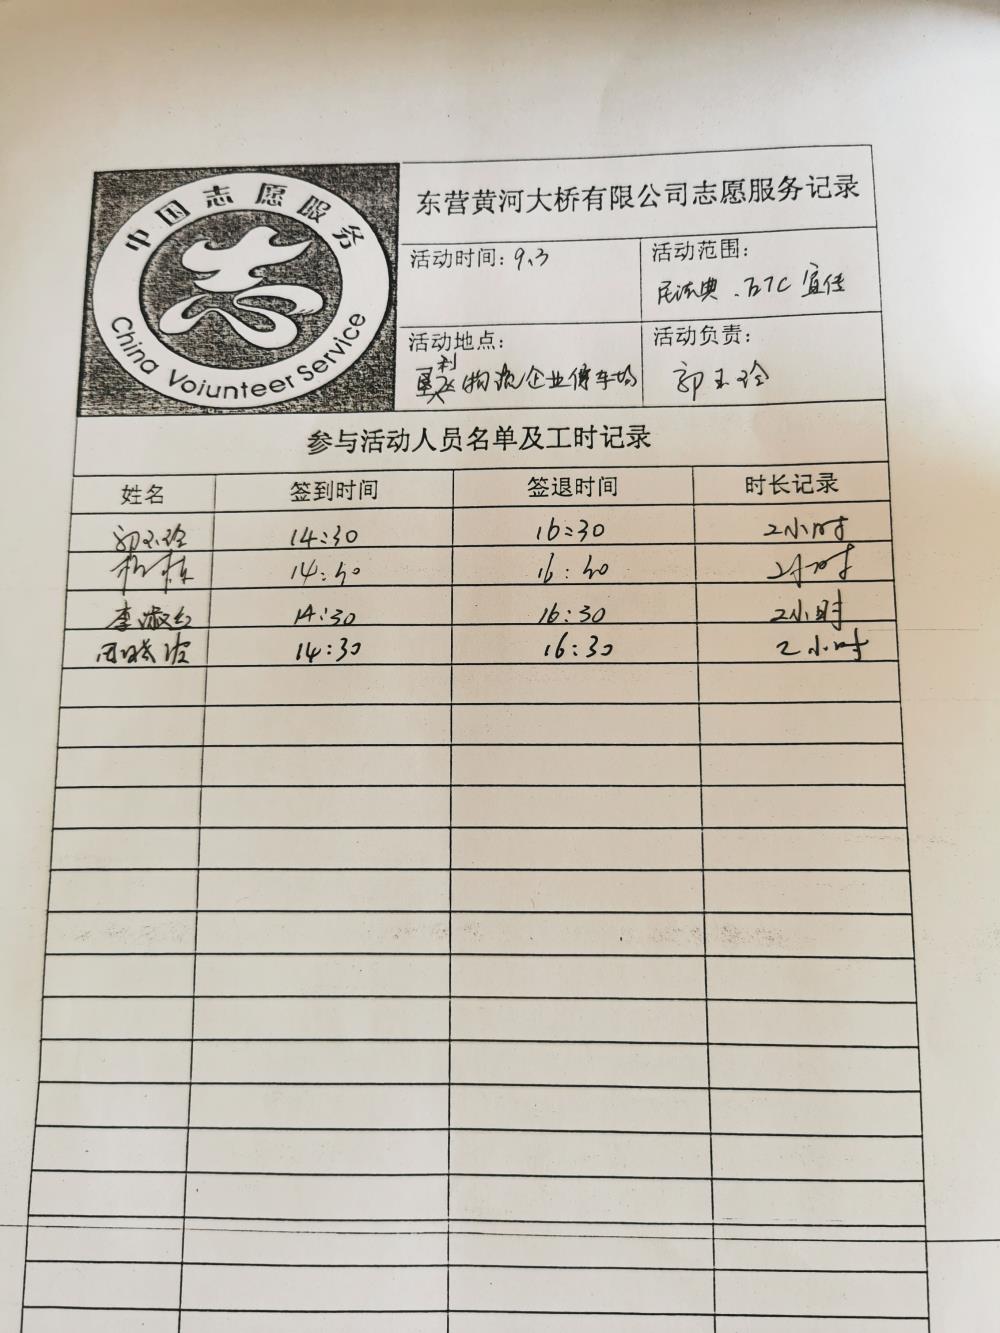 中国志愿服务
China Voiunteer Service
东营黄河大桥有限公司志愿服务记录
活动时间: 9.3
活动范围:
民法典、ETC宣传
活动地点:
利
物流企业停车场
活动负责:
郭玉玲
参与活动人员名单及工时记录
姓名 签到时间 签退时间 时长记录
郭玉玲 14:30 16:30 2小时
14:30 16:30 2小时
李淑 14:30 16:30 2小时
14:30 16:30 2小时